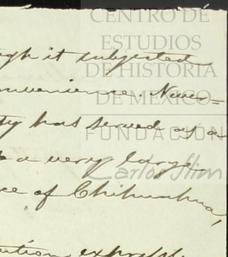 CENTRO DE
ESTUDIOS
DE HISTORIA
DE MÉXICO
FUNDACIÓN
Carlos Slim
ugh it subjected
onvenience. Never=
ty has served as a
a very large
ce of Chihuahua,
ution, expressl